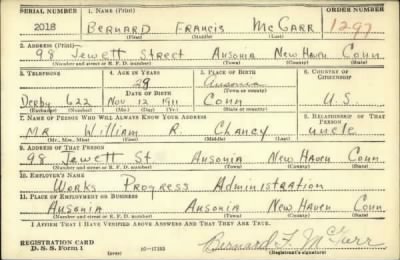 SERIAL NUMBER 1. NAME (Print) ORDER NUMBER
2018 BERNARD FRANCIS McCARR 1297
(First) (Middle) (Last)
2. ADDRESS (Print)
98 Jewett Street Ansonia New Haven Conn
(Number and street or R. F. D. number) (Town) (County) (State)
3. TELEPHONE 4. AGE IN YEARS 5. PLACE OF BIRTH 6. COUNTRY OF CITIZENSHIP
28 Ansonia
DATE OF BIRTH (Town or county)
Derby 622 Nov 12 1911 Conn U.S.
(Exchange) (No.) (Mo.) (Day) (Yr.) (State or country)
7. NAME OF PERSON WHO WILL ALWAYS KNOW YOUR ADDRESS 8. RELATIONSHIP OF THAT PERSON
Mr William R. Chaney uncle
(Mr., Mrs., Miss) (First) (Middle) (Last)
9. ADDRESS OF THAT PERSON
98 Jewett St Ansonia New Haven Conn
(Number and street or R. F. D. number) (Town) (County) (State)
10. EMPLOYER'S NAME
Works Progress Administration
11. PLACE OF EMPLOYMENT OR BUSINESS
Ansonia Ansonia New Haven Conn
(Number and street or R. F. D. number) (Town) (County) (State)
I AFFIRM THAT I HAVE VERIFIED ABOVE ANSWERS AND THAT THEY ARE TRUE.
REGISTRATION CARD
D. S. S. Form 1 (over) 16—17105 Bernard F. McCarr
(Registrant's signature)